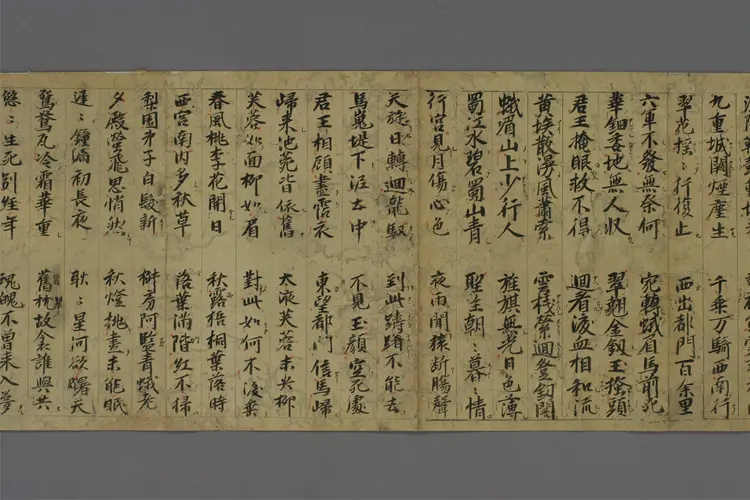 九重城闕煙塵生 千乗万騎西南行
翠花搖〻行復止 西出都門百余里
六軍不發無奈何 宛轉蛾眉馬前死
華鈿委地無人収 翠翹金釵玉搔頭
君王掩眼救不得 迴看淚血相和流
黄埃散漫風蕭索 雲棧縈迴登釼閣
蛾眉山上少行人 旌旗無光日色薄
蜀江水碧蜀山青 聖主朝〻暮〻情
行宮見月傷心色 夜雨聞猿断腸聲
天旋日轉迴龍馭 到此躊躇不能去
馬嵬堤下泥土中 不見玉顔空死處
君王相顧盡霑衣 東望都門信馬歸
歸来池苑皆依舊 太液芙蓉未央柳
芙蓉如面柳如眉 對此如何不淚垂
春風桃李花開日 秋露梧桐葉落時
西宮南内多秋草 落葉満階紅不掃
梨園弟子白髪新 椒房阿監青蛾老
夕殿螢飛思悄然 秋燈挑盡未能眠
遅〻鐘漏初長夜 耿〻星河欲曙天
鴛鴦瓦冷霜華重 舊枕故衾誰與共
悠〻生死別経年 魂魄不曽来入夢